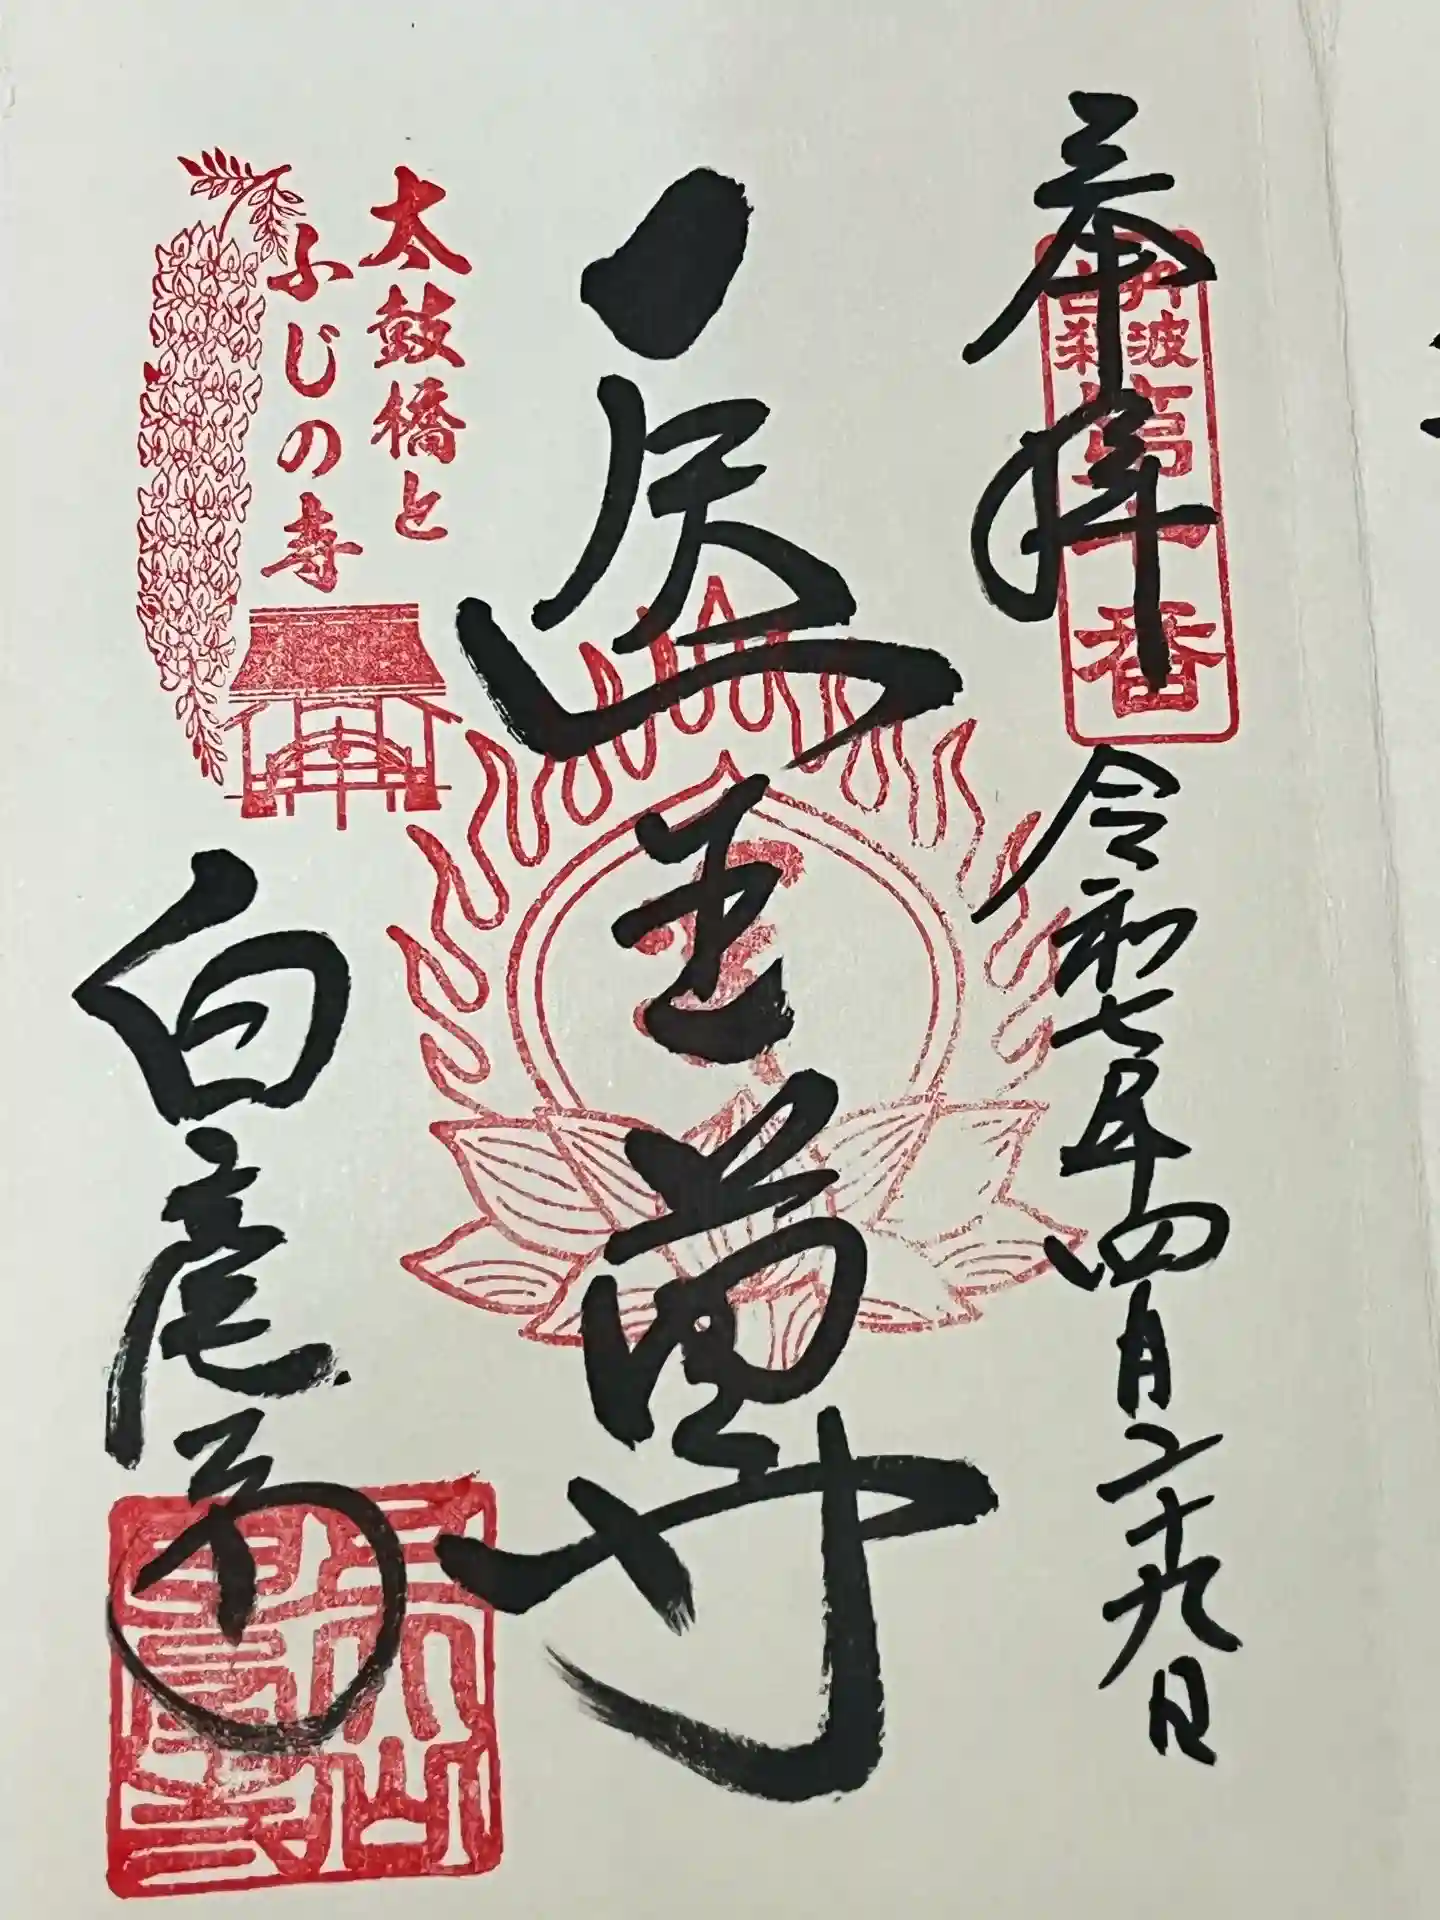 奉拝
丹波
古刹
令和七年四月二十九日
医王尊
太鼓橋と
ふじの寺
白毫寺
五大山
白毫寺